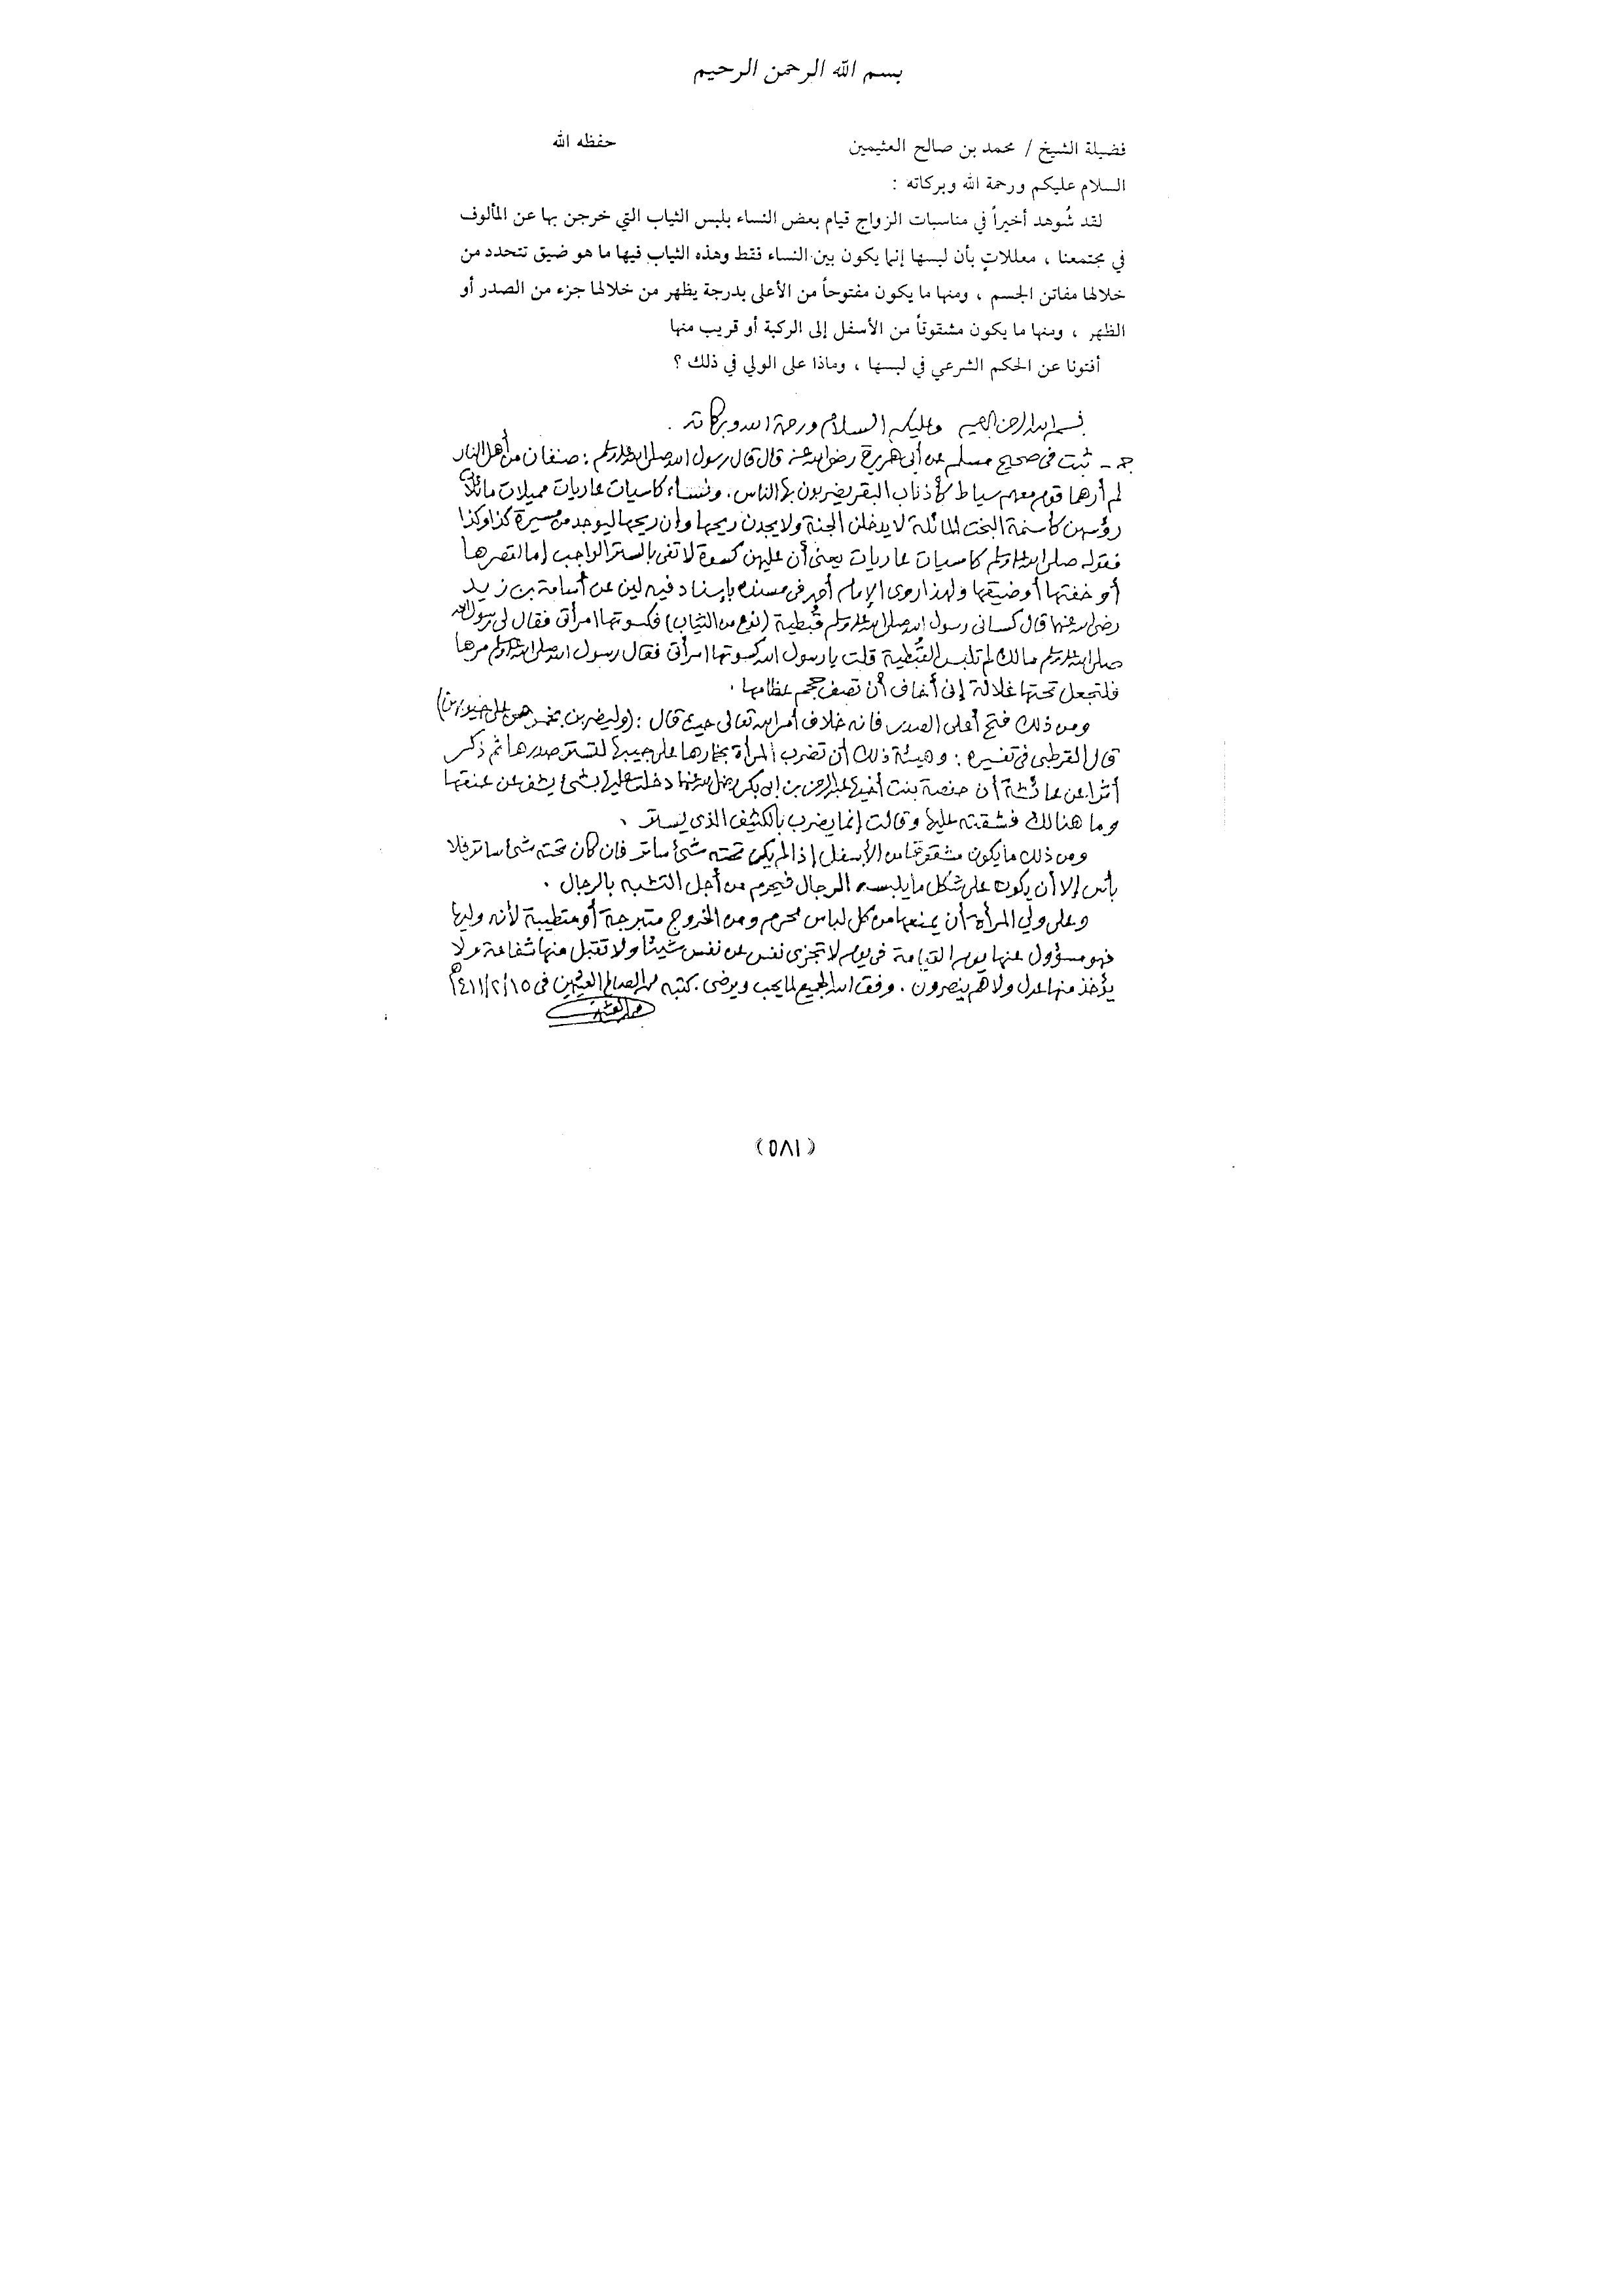 بسم الله الرحمن الرحيم
فضيلة الشيخ / محمد بن صالح العثيمين حفظه الله
السلام عليكم ورحمة الله وبركاته :
لقد شُوهد أخيراً في مناسبات الزواج قيام بعض النساء بلبس الثياب التي خرجن بها عن المألوف
في مجتمعنا ، معللاتٍ بأن لبسها إنما يكون بين النساء فقط وهذه الثياب فيها ما هو ضيق تتحدد من
خلالها مفاتن الجسم ، ومنها ما يكون مفتوحاً من الأعلى بدرجة يظهر من خلالها جزء من الصدر أو
الظهر ، ومنها ما يكون مشقوقاً من الأسفل إلى الركبة أو قريب منها
أفتونا عن الحكم الشرعي في لبسها ، وماذا على الولي في ذلك ؟
بسم الله الرحمن الرحيم وعليكم السلام ورحمة الله وبركاته .
جـ - ثبت في صحيح مسلم عن أبي هريرة رضي الله عنه قال قال رسول الله صلى الله عليه وسلم : صنفان من أهل النار
لم أرهما قوم معهم سياط كأذناب البقر يضربون بها الناس . ونساء كاسيات عاريات مميلات مائلات
رؤسهن كأسنمة البخت المائلة لا يدخلن الجنة ولا يجدن ريحها وإن ريحها ليوجد من مسيرة كذا وكذا
فقوله صلى الله عليه وسلم كاسيات عاريات يعني أن عليهن كسوة لا تفي بالستر الواجب إما لقصرها
أو خفتها أو ضيقها ولهذا روى الإمام أحمد في مسنده بإسناد فيه لين عن أسامة بن زيد
رضي الله عنهما قال كساني رسول الله صلى الله عليه وسلم قُبطية (نوع من الثياب) فكسوتها امرأتي فقال لي رسول الله
صلى الله عليه وسلم مالك لم تلبس القُبطية قلت يا رسول الله كسوتها امرأتي فقال رسول الله صلى الله عليه وسلم مرها
فلتجعل تحتها غلالة إني أخاف أن تصف حجم عظامها .
ومن ذلك فتح أعلى الصدر فانه خلاف أمر الله تعالى حيث قال : (وليضربن بخمرهن على جيوبهن)
قال القرطبي في تفسيره : وهيئة ذلك أن تضرب المرأة بخمارها على جيبها لتستر صدرها ثم ذكر
أثرا عن عائشة أن حفصة بنت أخيها عبد الرحمن بن أبي بكر رضي الله عنهما دخلت عليها بشئ يشف عن عنقها
وما هنالك فشقته عليها وقالت إنما يضرب بالكثيف الذي يستر .
ومن ذلك ما يكون مشقوقا من الأسفل إذا لم يكن تحته شئ ساتر فان كان تحته شئ ساتر فلا
بأس إلا أن يكون على شكل ما يلبسه الرجال فيحرم من أجل التشبه بالرجال .
وعلى ولي المرأة أن يمنعها من كل لباس محرم ومن الخروج متبرجة أو متطيبة لأنه وليها
فهو مسؤول عنها يوم القيامة في يوم لا تجزى نفس عن نفس شيئا ولا تقبل منها شفاعة ولا
يؤخذ منها عدل ولا هم ينصرون . وفق الله الجميع لما يحب ويرضى . كتبه محمد الصالح العثيمين في ١٥/٢/١٤١١هـ
(٥٨١)